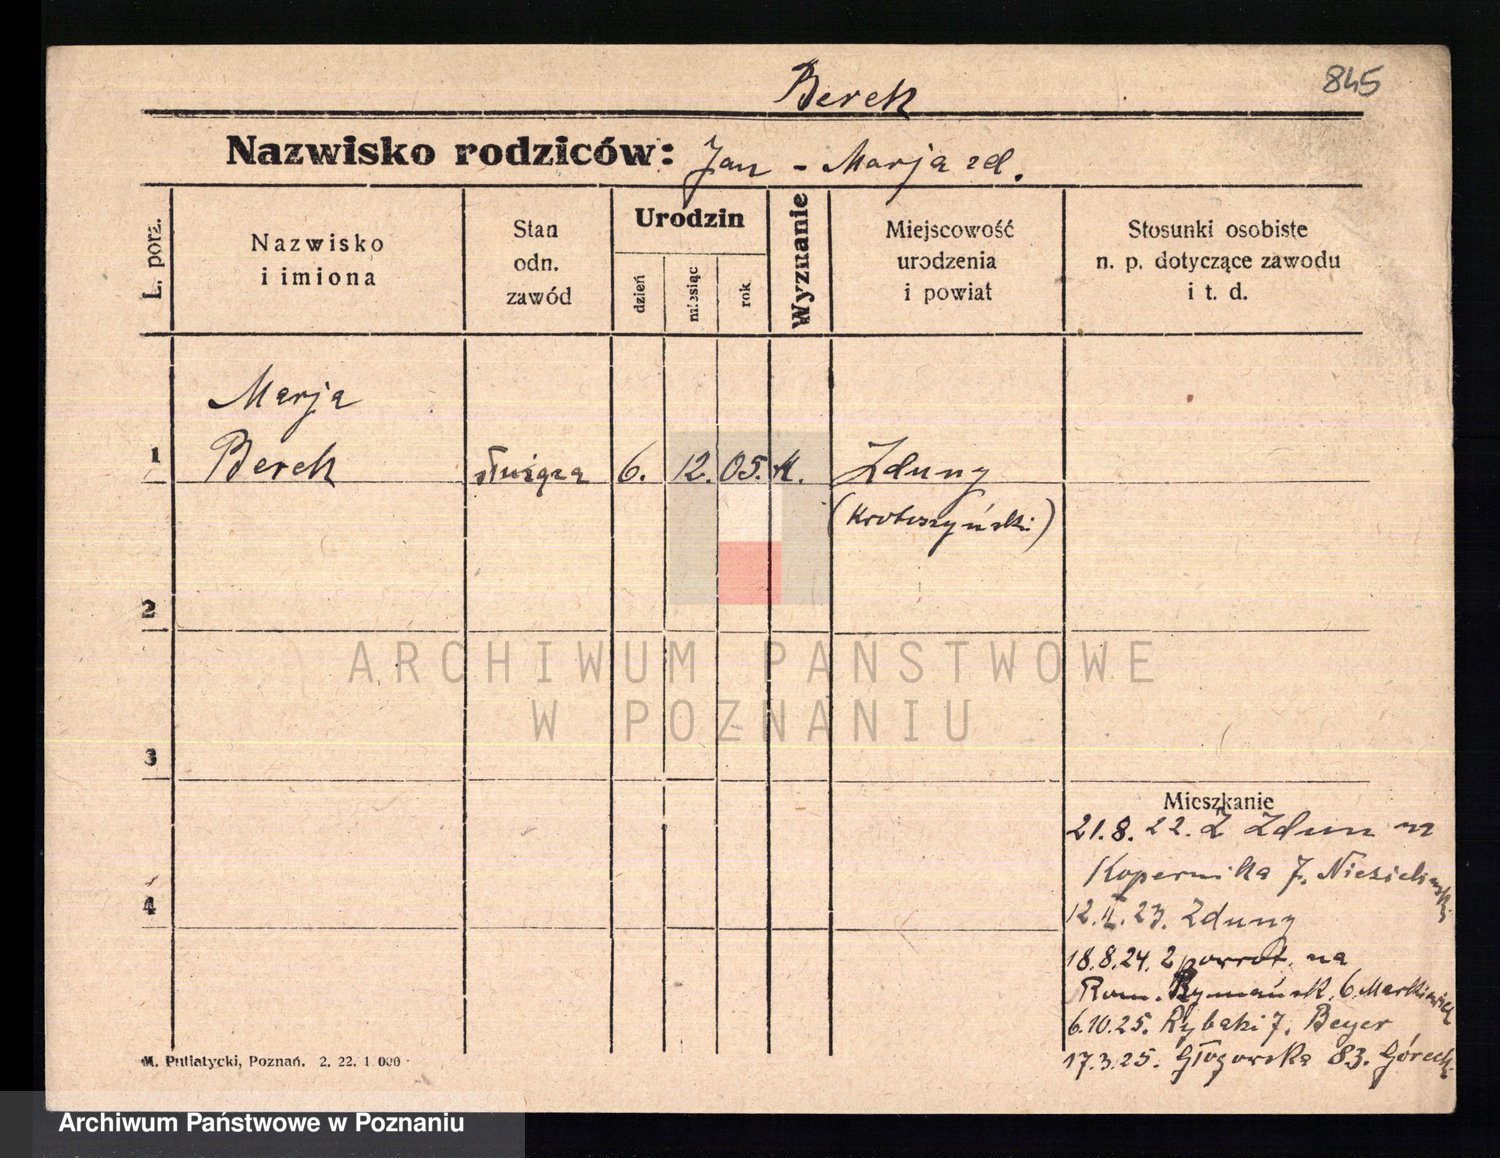 845
Berek
Nazwisko rodziców: Jan - Marja zd.
L. porz.
Nazwisko
i imiona
Stan
odn.
zawód
Urodzin
dzień
miesiąc
rok
Wyznanie
Miejscowość
urodzenia
i powiat
Stosunki osobiste
n. p. dotyczące zawodu
i t. d.
Marja
1 Berek służąca 6. 12. 05. k. Zduny
(Krotoszyński)
2
ARCHIWUM PAŃSTWOWE
W POZNANIU
3
Mieszkanie
21.8.22. Z Zdun
Kopernika 7.
4
12. 23. Zduny
18.8.24. na
Rom. Rymańsk. 6.
6.10.25. Rybaki 7. Beyer
17.3.25. Głogowska 83.
M. Putiatycki, Poznań. 2. 22. 1 000
Archiwum Państwowe w Poznaniu